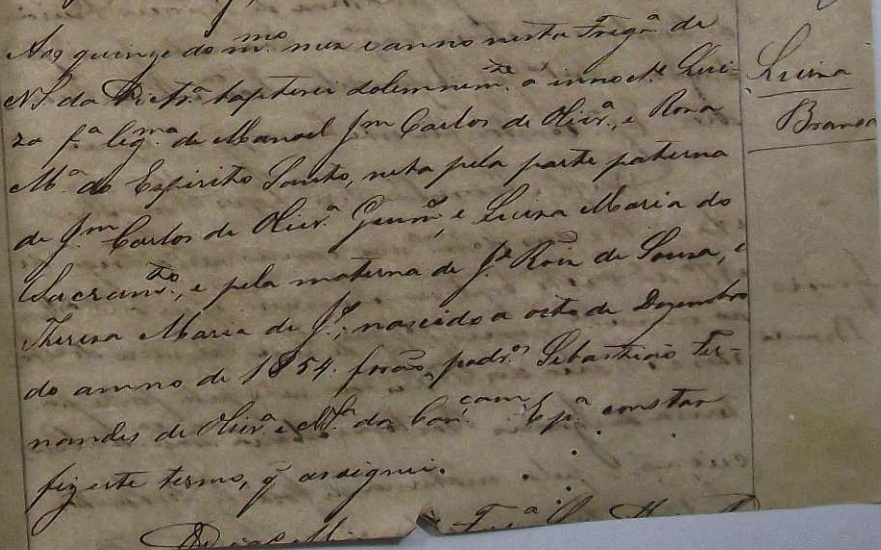 Aos quinze do m.mo mez e anno nesta Freg.a de
N S. da Vict.a baptizei solemnem.te a innoc.te Lui-
za f.a leg.ma de Manoel Jm Carlos de Olivr.a, e Roza
M.a do Espirito Santo, neta pela parte paterna
de J.m Carlos de Olivr.a Guim.es, e Luiza Maria do
Sacram.to, e pela materna de J.e Roiz de Souza, e
Thereza Maria de J.s, nascida a oito de Dezembro
do anno de 1854. forão padr.os Sebastião Fer-
nandes de Olivr.a e N. S.a da Con.cam E p.a constar
fiz este termo, q̃ assignei.
Luiza
Branca